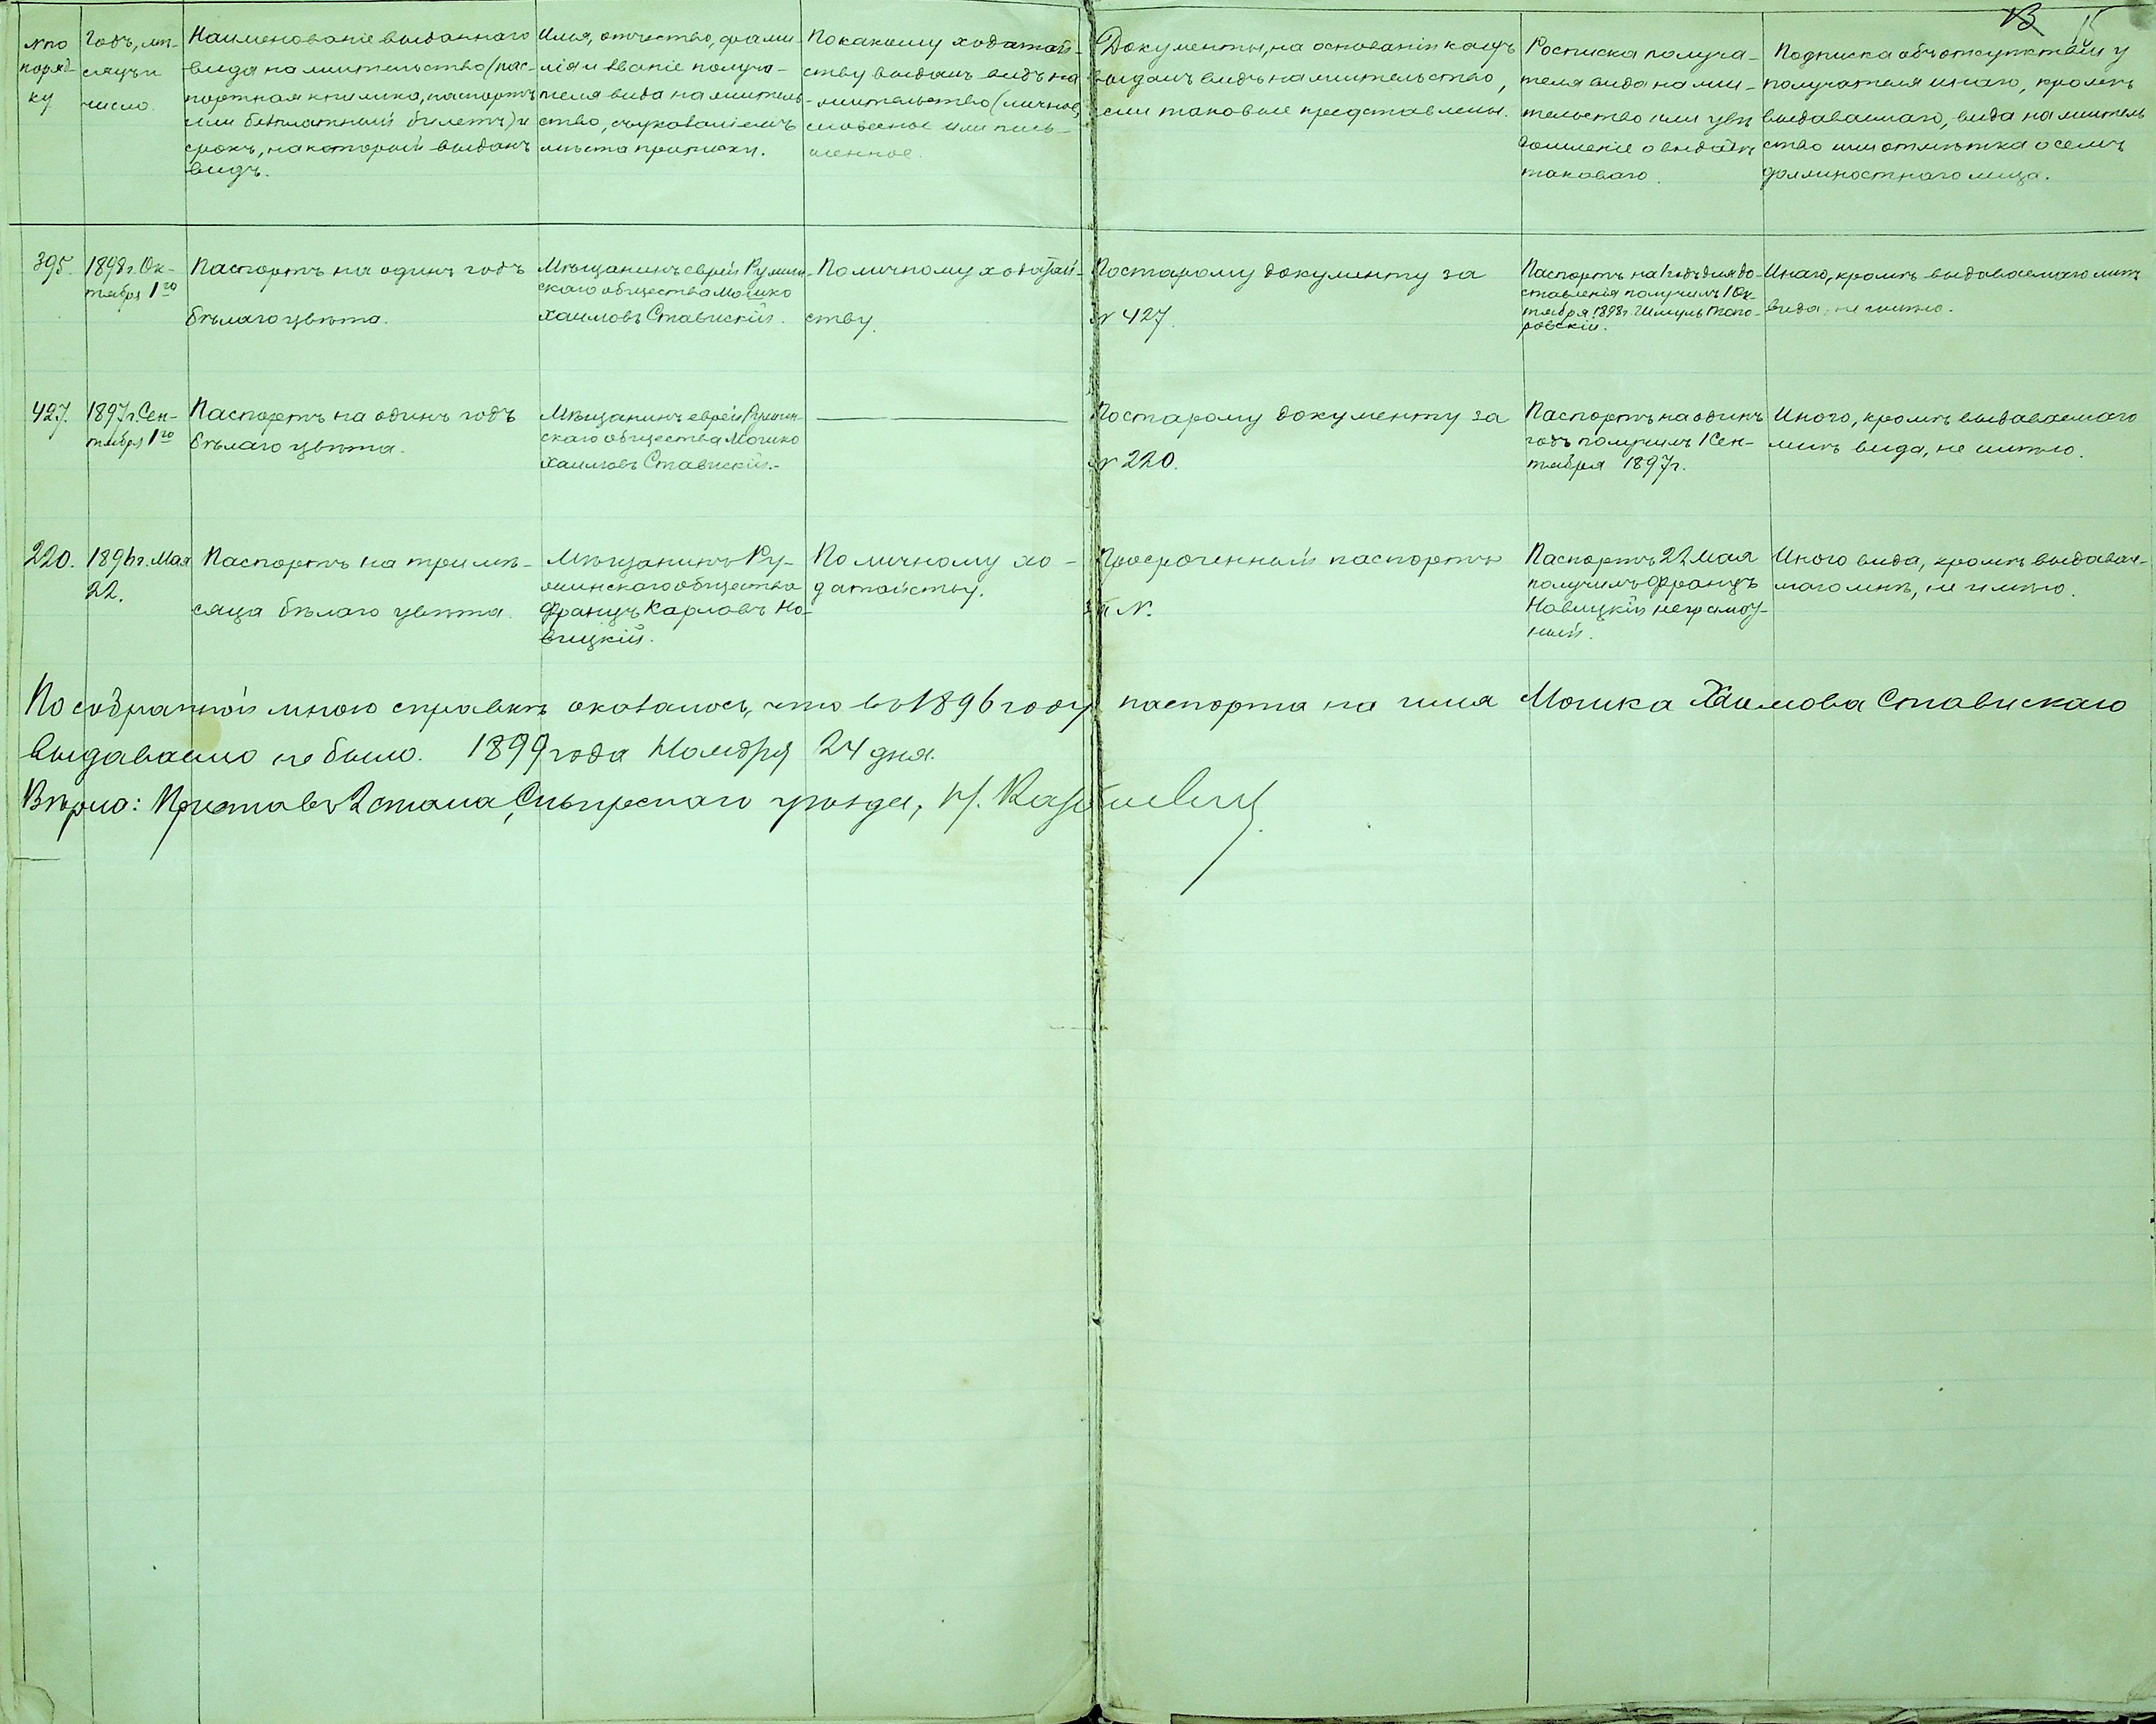 13 15
№ по
поряд-
ку
Годъ, мѣ-
сяцъ и
число.
Наименованіе выданнаго
вида на жительство (пас-
портная книжка, паспортъ
или безплатный билетъ) и
срокъ, на который выданъ
видъ.
Имя, отчество, фами-
лія и званіе получа-
теля вида на житель-
ство, съ указаніемъ
мѣста приписки.
По какому ходатай-
ству выданъ видъ на
жительство (личное,
словесное или пись-
менное.
Документы, на основаніи коихъ
выданъ видъ на жительство,
если таковые представлены.
Росписка получа-
теля вида на жи-
тельство или увѣ
домленіе о выдачѣ
таковаго.
Подписка объ отсутствіи у
получателя инаго, кромѣ
выдаваемаго, вида на житель
ство или отмѣтка о семъ
должностнаго лица.
395.
1898 г. Ок-
тября 1го
Паспортъ на одинъ годъ
бѣлаго цвѣта.
Мѣщанинъ еврей Румшин-
скаго общества Мошко
Хаимовъ Ставискій.
По личному ходатай-
ству.
По старому документу за
№ 427.
Паспортъ на 1 годъ для до-
ставленія получилъ 1 Ок-
тября 1898 г. Шмуль
Инаго, кромѣ выдаваемаго мнѣ
вида, не имѣю.
427.
1897 г. Сен-
тября 1го
Паспортъ на одинъ годъ
бѣлаго цвѣта.
Мѣщанинъ еврей Румшин-
скаго общества Мошко
Хаимовъ Ставискій.
По старому документу за
№ 220.
Паспортъ на одинъ
годъ получилъ 1 Сен-
тября 1897 г.
Иного, кромѣ выдаваемаго
мнѣ вида, не имѣю.
220.
1896 г. Мая
22.
Паспортъ на три мѣ-
сяца бѣлаго цвѣта.
Мѣщанинъ Ру-
мшинскаго общества
Францъ Карловъ Но-
вицкій.
По личному хо-
датайству.
Просроченный паспортъ
за №.
Паспортъ 22 Мая
получилъ Францъ
Новицкій неграмот-
ный.
Иного вида, кромѣ выдавае-
маго мнѣ, не имѣю.
По собранной мною справкѣ оказалось, что въ 1896 году паспорта на имя Мошка Хаимова Ставискаго
выдаваемо не было. 1899 года Ноября 24 дня.
Вѣрно: Приставъ 2 стана, уѣзда,